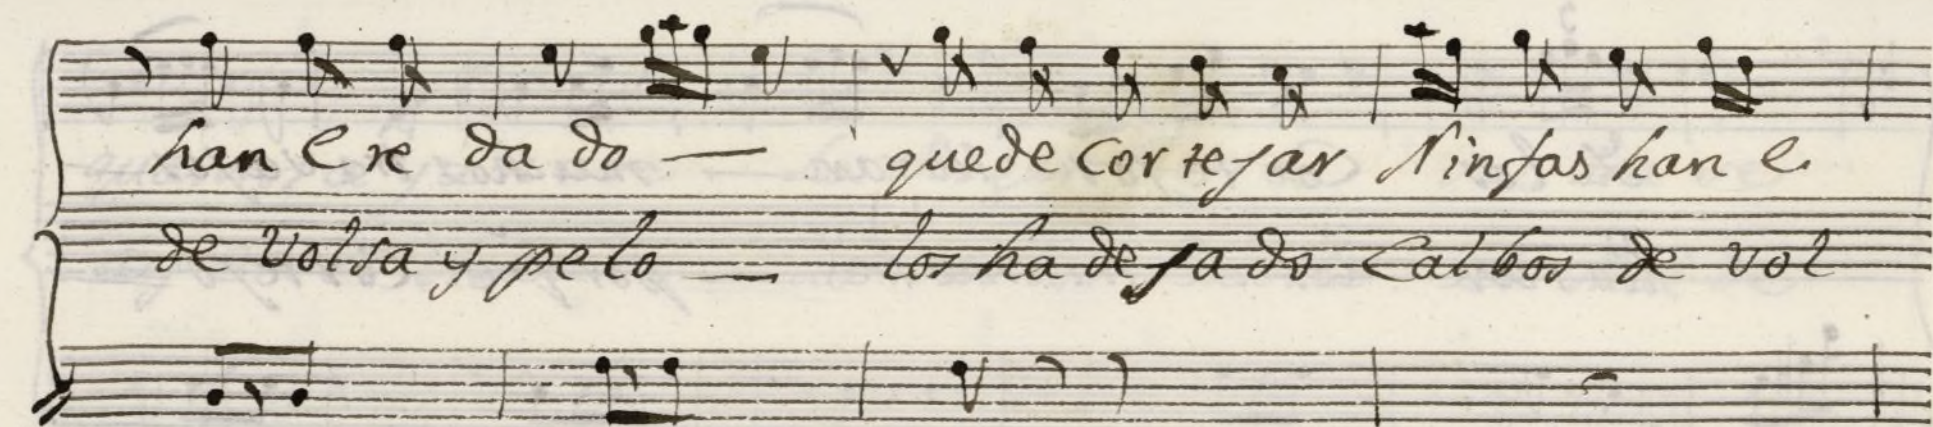 han e re da do — que de Cor te jar Ninfas han e
de volsa y pe lo — los ha de ja do Calbos de vol